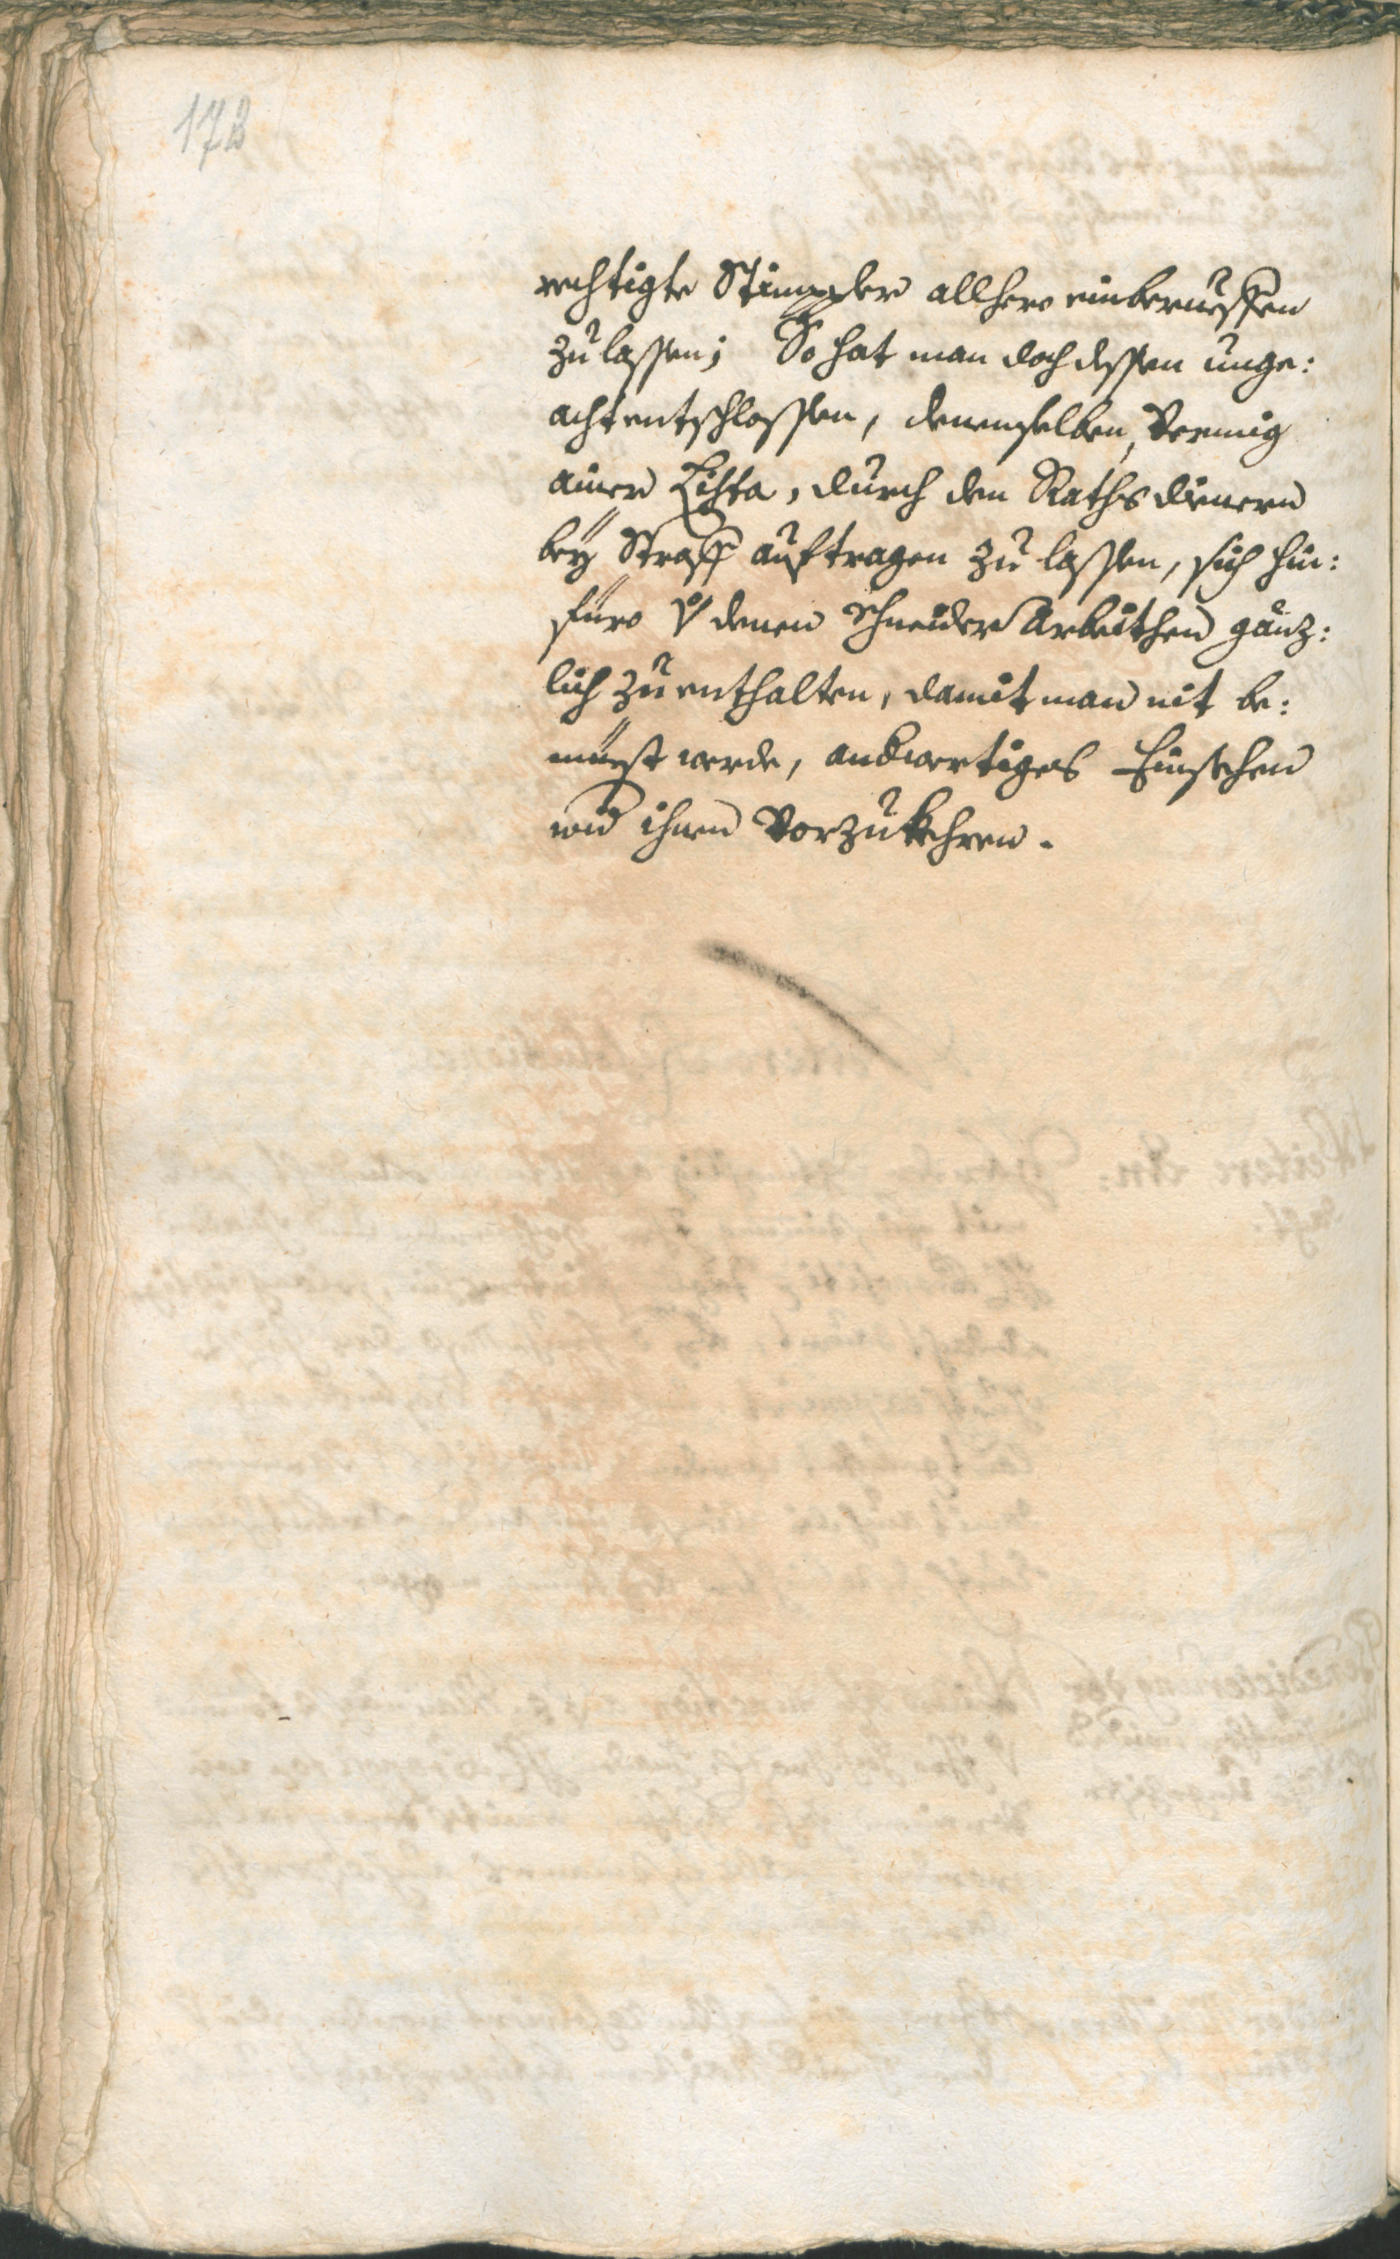 178
rechtigte Stimppler allhero einberueffen
zu lassen; So hat man doch dessen unge:
acht entschlossen, denenselben, Vermig
ainer Lista, durch den Rathsdienern
bey Straff auftragen zu lassen, sich hin:
füro denen Schneider Arbeithen gänz:
lich zu enthalten, damit man nit be:
miest werde, andwertiges Einsechen
wid ihnen Vorzukhehren.